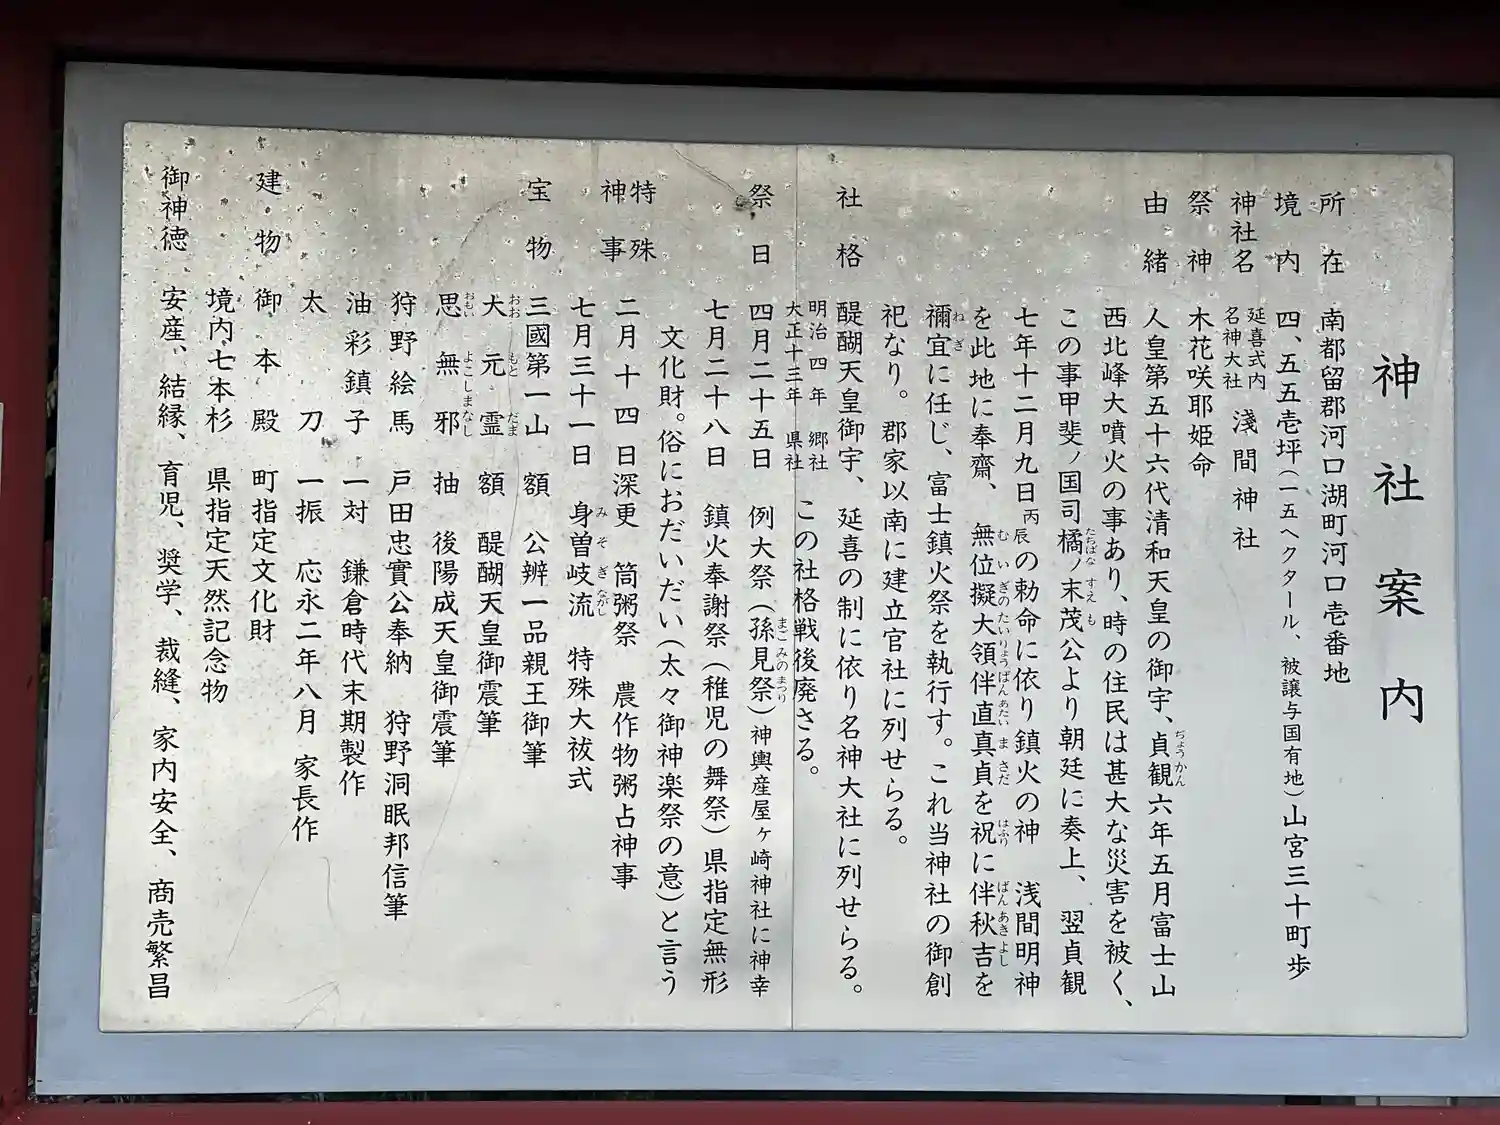 神社案内
所在 南都留郡河口湖町河口壱番地
境内 四、五五壱坪(一五ヘクタール、被譲与国有地)山宮三十町歩
神社名 延喜式内名神大社 淺間神社
祭神 木花咲耶姫命
由緒 人皇第五十六代清和天皇の御宇、貞観六年五月富士山
西北峰大噴火の事あり、時の住民は甚大な災害を被く、
この事甲斐ノ国司橘ノ末茂公より朝廷に奏上、翌貞観
七年十二月九日丙辰の勅命に依り鎮火の神 浅間明神
を此地に奉齋、無位擬大領伴直真貞を祝に伴秋吉を
禰宜に任じ、富士鎮火祭を執行す。これ当神社の御創
祀なり。郡家以南に建立官社に列せらる。
社格 醍醐天皇御宇、延喜の制に依り名神大社に列せらる。
明治四年 郷社
大正十三年 県社 この社格戦後廃さる。
祭日 四月二十五日 例大祭(孫見祭)神輿産屋ヶ崎神社に神幸
七月二十八日 鎮火奉謝祭(稚児の舞祭)県指定無形
文化財。俗におだいだい(太々御神楽祭の意)と言う
特殊神事 二月十四日深更 筒粥祭 農作物粥占神事
七月三十一日 身曽岐流 特殊大祓式
宝物 三國第一山 額 公辨一品親王御筆
大元霊 額 醍醐天皇御震筆
思無邪 抽 後陽成天皇御震筆
狩野絵馬 戸田忠實公奉納 狩野洞眠邦信筆
油彩鎮子 一対 鎌倉時代末期製作
太刀 一振 応永二年八月 家長作
建物 御本殿 町指定文化財
境内七本杉 県指定天然記念物
御神徳 安産、結縁、育児、奨学、裁縫、家内安全、商売繁昌